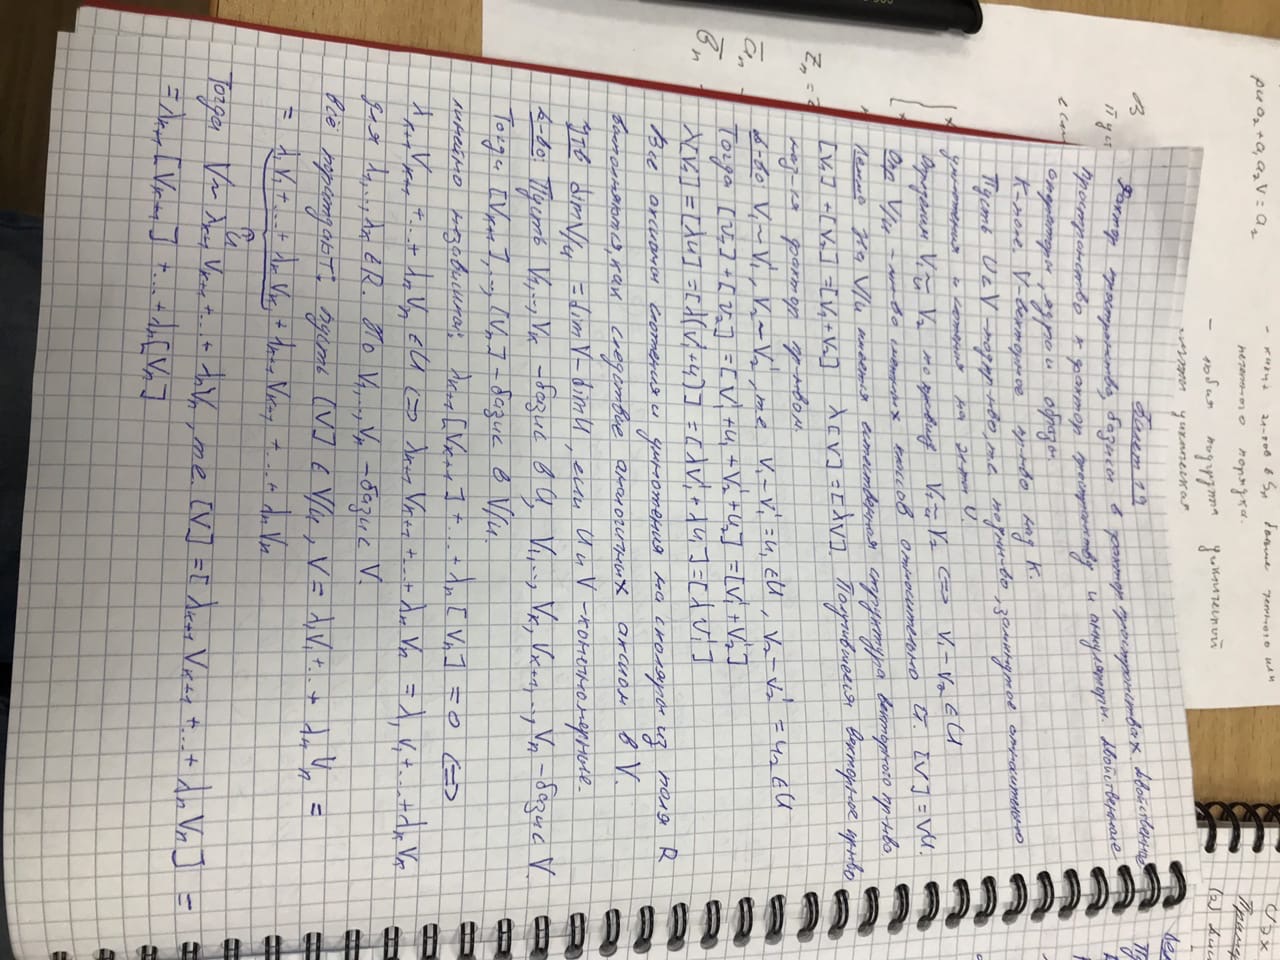 ри a₂ + a₁ a₂ V = a₂
- каких эл-тов в Sₙ больше четного или
нечетного порядка.
- любая подгруппа циклической
циклическая
В
Пуст
если
Zₙ =
aₙ
Bₙ
Пример
(2)
Билет 19
Фактор пространства, базисы в фактор пространствах. Двойственное
пространство к фактор пространству и аннуляторы. Двойственные
операторы, ядра и образы.
K-поле. V-векторное пр-нво над K.
Пусть U⊂V-подпр-нво, т.е. подмн-во, замкнутое относительно
умножения и сложения на эл-ты U.
Определим V₁ ~ᵤ V₂ по правилу V₁ ~ᵤ V₂ <=> V₁ - V₂ ∈ U
Опр V/u - мн-во смежных классов относительно [V] = VU.
Лемма На V/u имеется естественная структура векторного пр-нва.
[V₁] + [V₂] = [V₁ + V₂] λ[V] = [λV]. Получившееся векторное пр-нво
наз-ся фактор пр-нвом.
Д-во: V₁ ~ V₁', V₂ ~ V₂', т.е V₁ - V₁' = u₁ ∈ U, V₂ - V₂' = u₂ ∈ U
Тогда [V₁] + [V₂] = [V₁' + u₁ + V₂' + u₂] = [V₁' + V₂']
λ[V₁] = [λu] = [λ(V₁' + u)] = [λV₁' + λu₁] = [λV₁']
Все аксиомы сложения и умножения на скаляры из поля R
выполняются, как следствие аналогичных аксиом в V.
Утв dim V/u = dim V - dim U, если U и V - конечномерные.
Д-во: Пусть V₁,.., Vₖ - базис в U, V₁,.., Vₖ, Vₖ₊₁,.., Vₙ - базис V.
Тогда [Vₖ₊₁],.., [Vₙ] - базис в V/u.
линейно независима: λₖ₊₁[Vₖ₊₁] + ... + λₙ[Vₙ] = 0 <=>
λₖ₊₁Vₖ₊₁ + ... + λₙVₙ ∈ U <=> λₖ₊₁Vₖ₊₁ + ... + λₙVₙ = λ₁V₁ + ... + λₖVₖ
для λ₁,.., λₖ ∈ R. Но V₁,.., Vₙ - базис V.
всё порождают: пусть [V] ∈ V/u, V = λ₁V₁ + ... + λₙVₙ =
= λ₁V₁ + ... + λₖVₖ + λₖ₊₁Vₖ₊₁ + ... + λₙVₙ
∈
U
Тогда V ~ λₖ₊₁Vₖ₊₁ + ... + λₙVₙ, т.е. [V] = [λₖ₊₁Vₖ₊₁ + ... + λₙVₙ] =
= λₖ₊₁[Vₖ₊₁] + ... + λₙ[Vₙ]